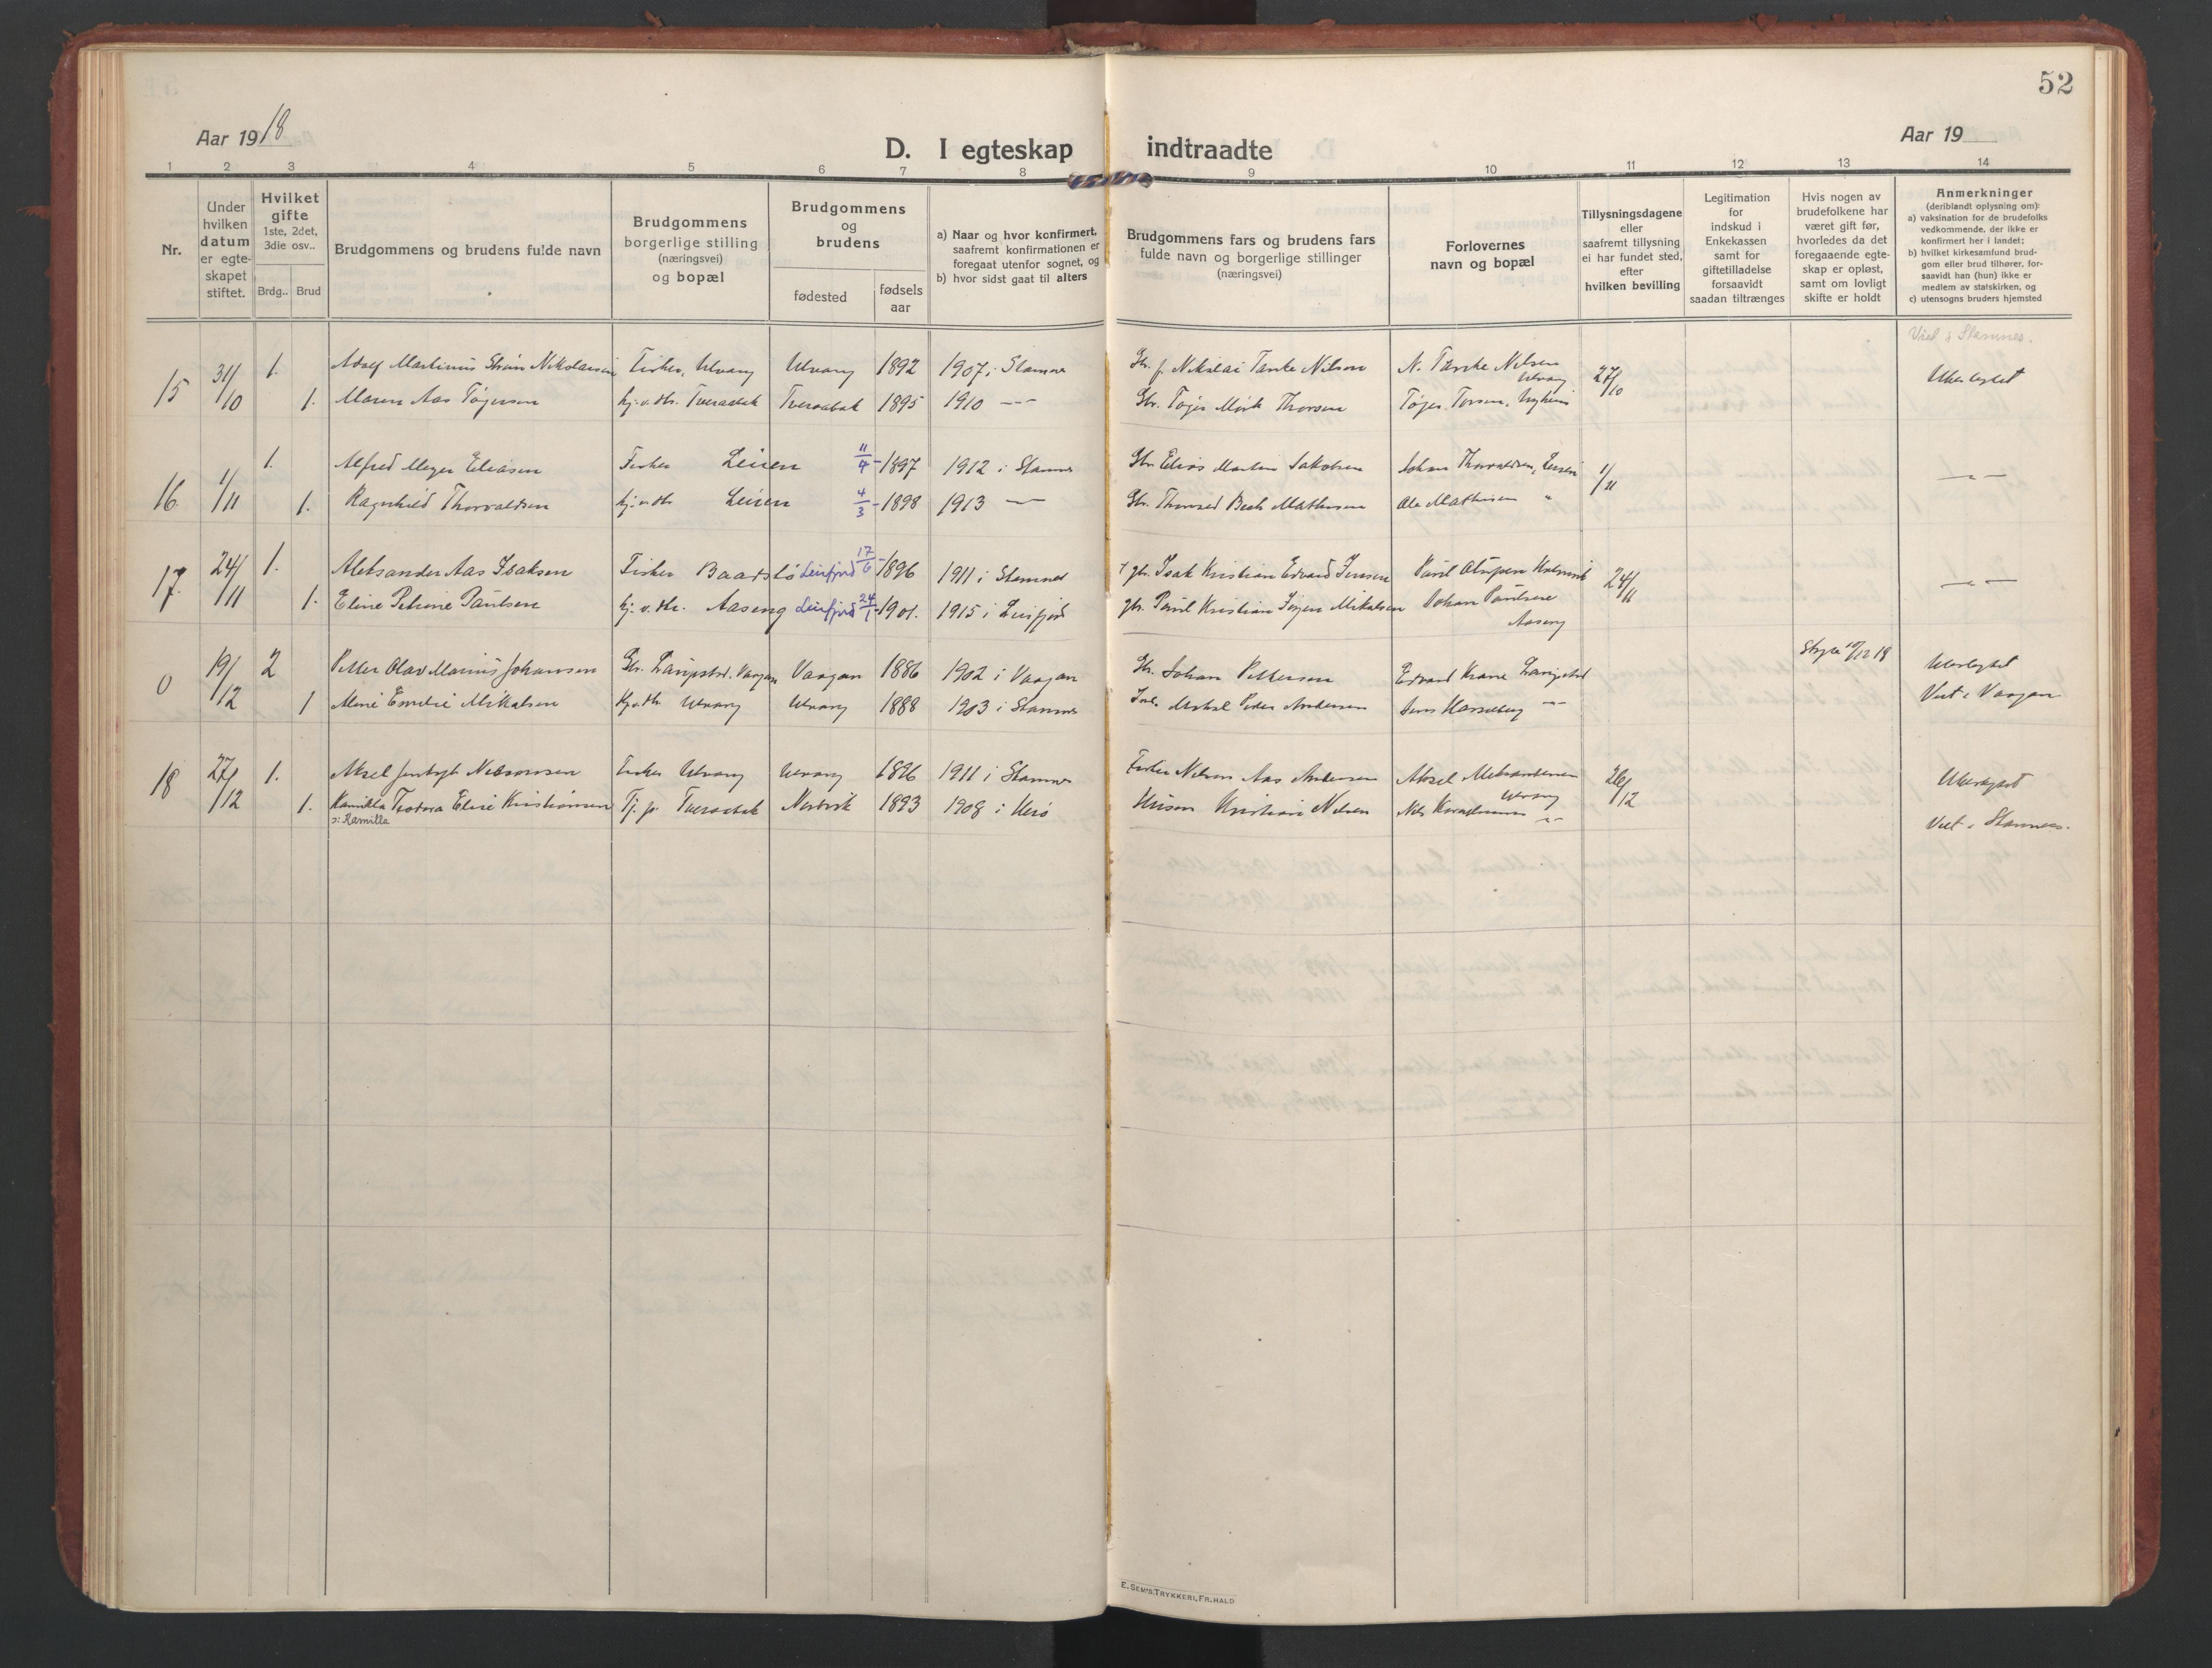 52
Aar 1918
Aar 19
D. I egteskap indtraadte
1 2 3 4 5 6 7 8 9 10 11 12 13 14
Nr.
Under hvilken datum er egteskapet stiftet.
Hvilket gifte 1ste, 2det, 3die osv..
Brdg.. Brud
Brudgommens og brudens fulde navn
Brudgommens borgerlige stilling (næringsvei) og bopæl
Brudgommens og brudens
fødested
fødsels aar
a) Naar og hvor konfirmert, saafremt konfirmationen er foregaat utenfor sognet, og
b) hvor sidst gaat til alters
Brudgommens fars og brudens fars fulde navn og borgerlige stillinger (næringsvei)
Forlovernes navn og bopæl
Tillysningsdagene eller saafremt tillysning ei har fundet sted, efter hvilken bevilling
Legitimation for indskud i Enkekassen samt for giftetilladelse forsaavidt saadan tiltrænges
Hvis nogen av brudefolkene har været gift før, hvorledes da det foregaaende egteskap er opløst, samt om lovligt skifte er holdt
Anmerkninger (deriblandt oplysning om):
a) vaksination for de brudefolks vedkommende, der ikke er konfirmert her i landet;
b) hvilket kirkesamfund brudgom eller brud tilhører, forsaavidt han (hun) ikke er medlem av statskirken, og
c) utensogns bruders hjemsted
Viet i Stamnes.
15 31/10 1. Adolf Martinus Nikolaisen Fisker, Ulvang Ulvang 1892 1907 i Stamnes Gbr. f. Nikolai Tanke Nilsen N. Tanke Nilsen Ulvang 27/10
1. Maren Aas Tøgersen hj.v.dtr. Tveraabak Tveraabak 1895 1910 — Gbr. Tøger Mørk Thorsen Tøger Torsen,
16 1/11 1. Alfred Meyer Eliasen Fisker Leinen 11/4 - 1897 1912 i Stamnes Gbr. Elias Martin Jakobsen Johan Thorvaldsen, Leinen 1/11 — " —
1. Ragnhild Thorvaldsen hj.v.dtr Leinen 4/3 - 1898 1913 — Gbr. Mathisen Ole Mathisen "
17. 24/11 1. Aleksander Aas Isaksen Fisker Baardslø Leirfjord 17/6 - 1896 1911 i Stamnes gbr. Isak Kristian Edvard Jensen 24/11 — " —
1. Eline Petrine Paulsen hj.v.dtr. Aaseng Leirfjord 24/1 - 1901. 1915 i Leirfjord gbr. Paul Kristian Jørgen Mikalsen Johan Paulsen
Aaseng
0 19/12 2 Petter Olav Marius Johansen Gbr. Vaagan Vaagan 1886 1902 i Vaagan Gbr. Johan Pettersen Edvard Stryk 19/12 18
1 Mine Emelie Mikalsen Hj.v.dtr Ulvang Ulvang 1888 1903 i Stamnes Mikal Peder Andersen Viet i Vaagan
18 27/12 1. Aksel Nilsen Fisker Ulvang Ulvang 1896 1911 i Stamnes Fisker Nilsen Aas Andersen Aksel 26/12
Ulvang
1. Kamilla Teodora Eline Kristiansen Tj. p. Tveraabak Nordvik 1893 1908 i Herø Kristian Nilsen
ɔ: Kamilla
Viet i Stamnes.
E. SEM'S TRYKKERI, FR.HALD